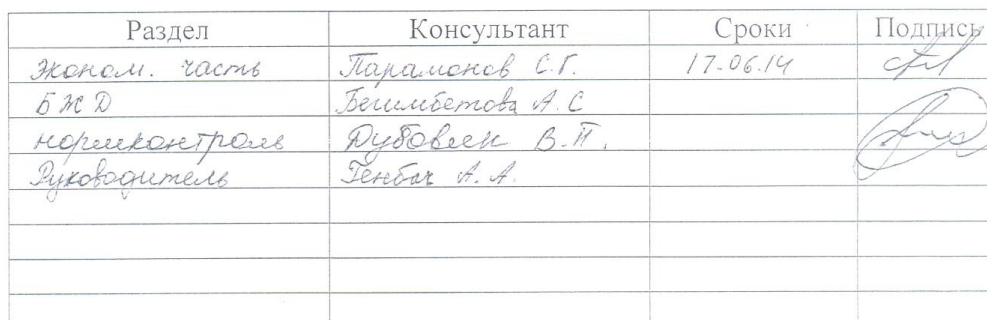 Раздел Консультант Сроки Подпись
Эконом. часть Парамонов С.Г. 17.06.14
БЖД Бегимбетова А.С
нормконтроль Дубовик В.П.
Руководитель Генбач А.А.